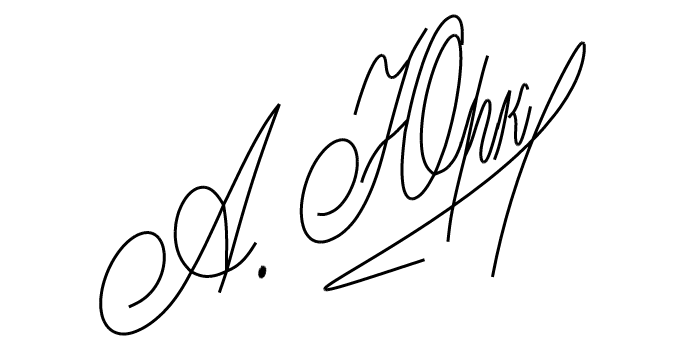 А. Юрк